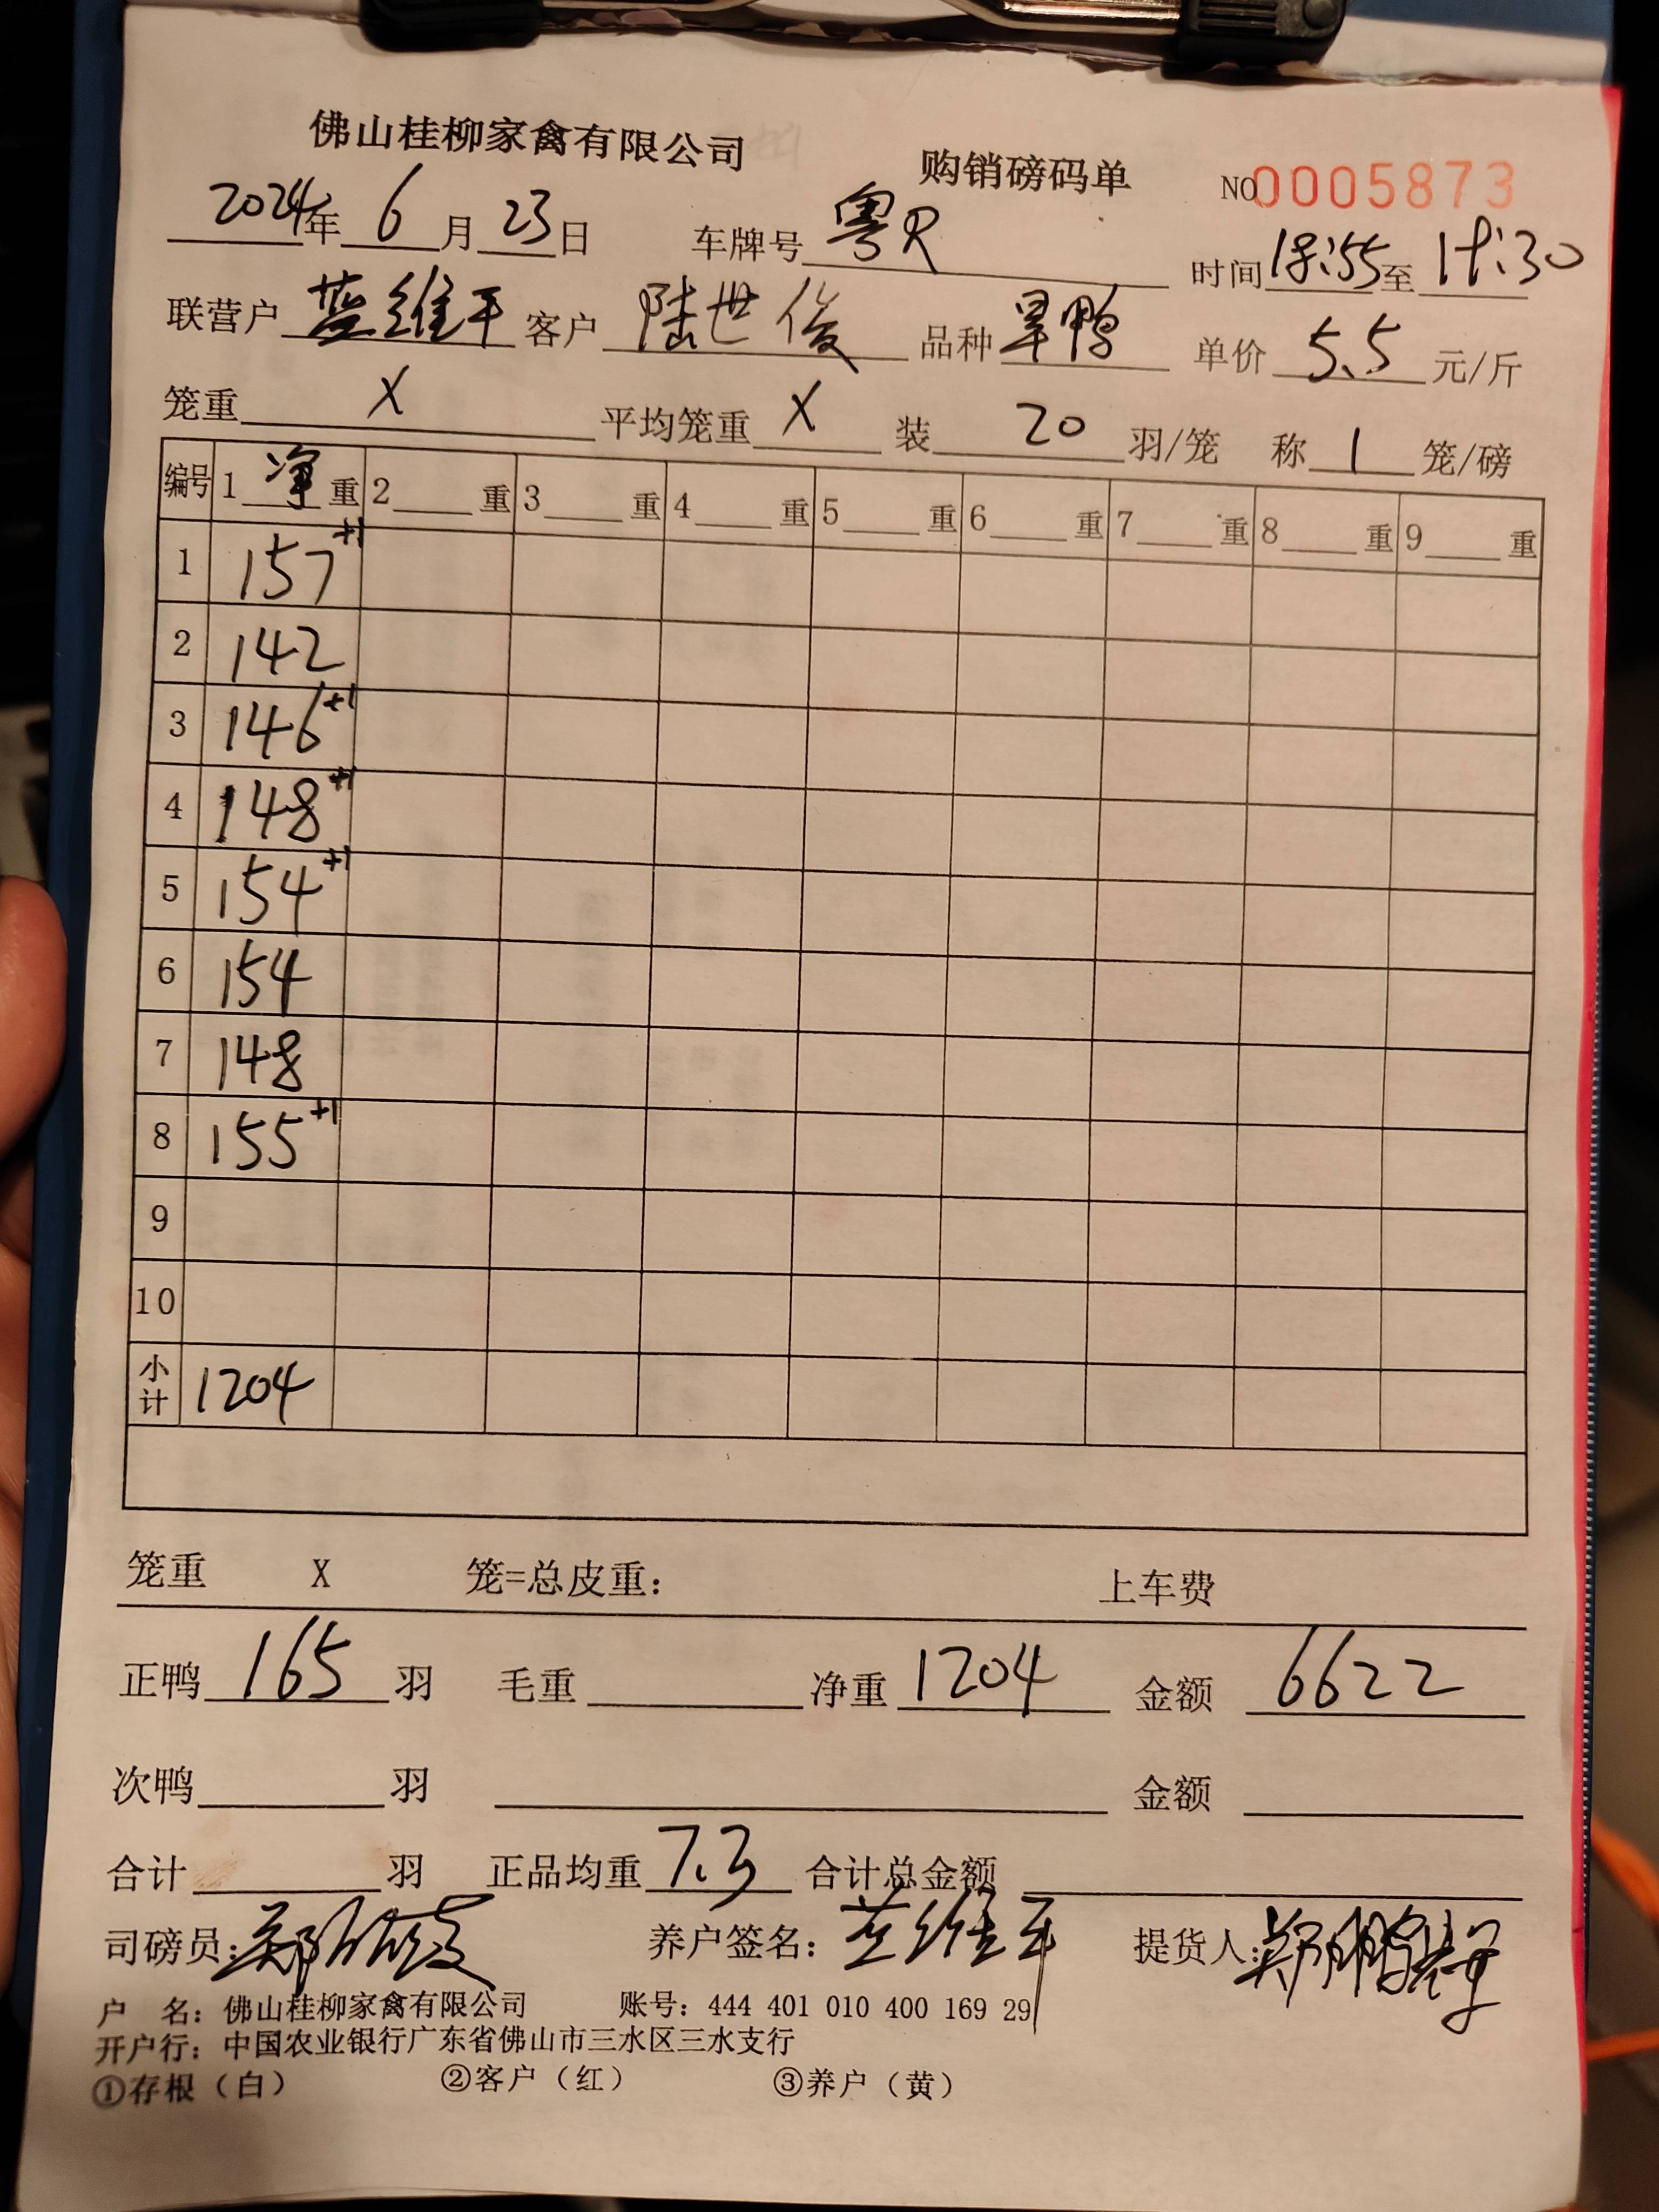 佛山桂柳家禽有限公司 购销磅码单 NO0005873
2024年6月23日 车牌号 粤R 时间18:55至19:30
联营户 蓝维平 客户 陆世俊 品种 旱鸭 单价 5.5 元/斤
笼重 X 平均笼重 X 装 20 羽/笼 称 1 笼/磅
编号 1 净 重 2 重 3 重 4 重 5 重 6 重 7 重 8 重 9 重
1 157+1
2 142
3 146+1
4 148+1
5 154+1
6 154
7 148
8 155+1
9
10
小计 1204
笼重 X 笼=总皮重: 上车费
正鸭 165 羽 毛重 净重 1204 金额 6622
次鸭 羽 金额
合计 羽 正品均重 7.3 合计总金额
司磅员: 养户签名: 蓝维平 提货人:
户 名: 佛山桂柳家禽有限公司 账号: 444 401 010 400 169 29
开户行: 中国农业银行广东省佛山市三水区三水支行
①存根（白） ②客户（红） ③养户（黄）